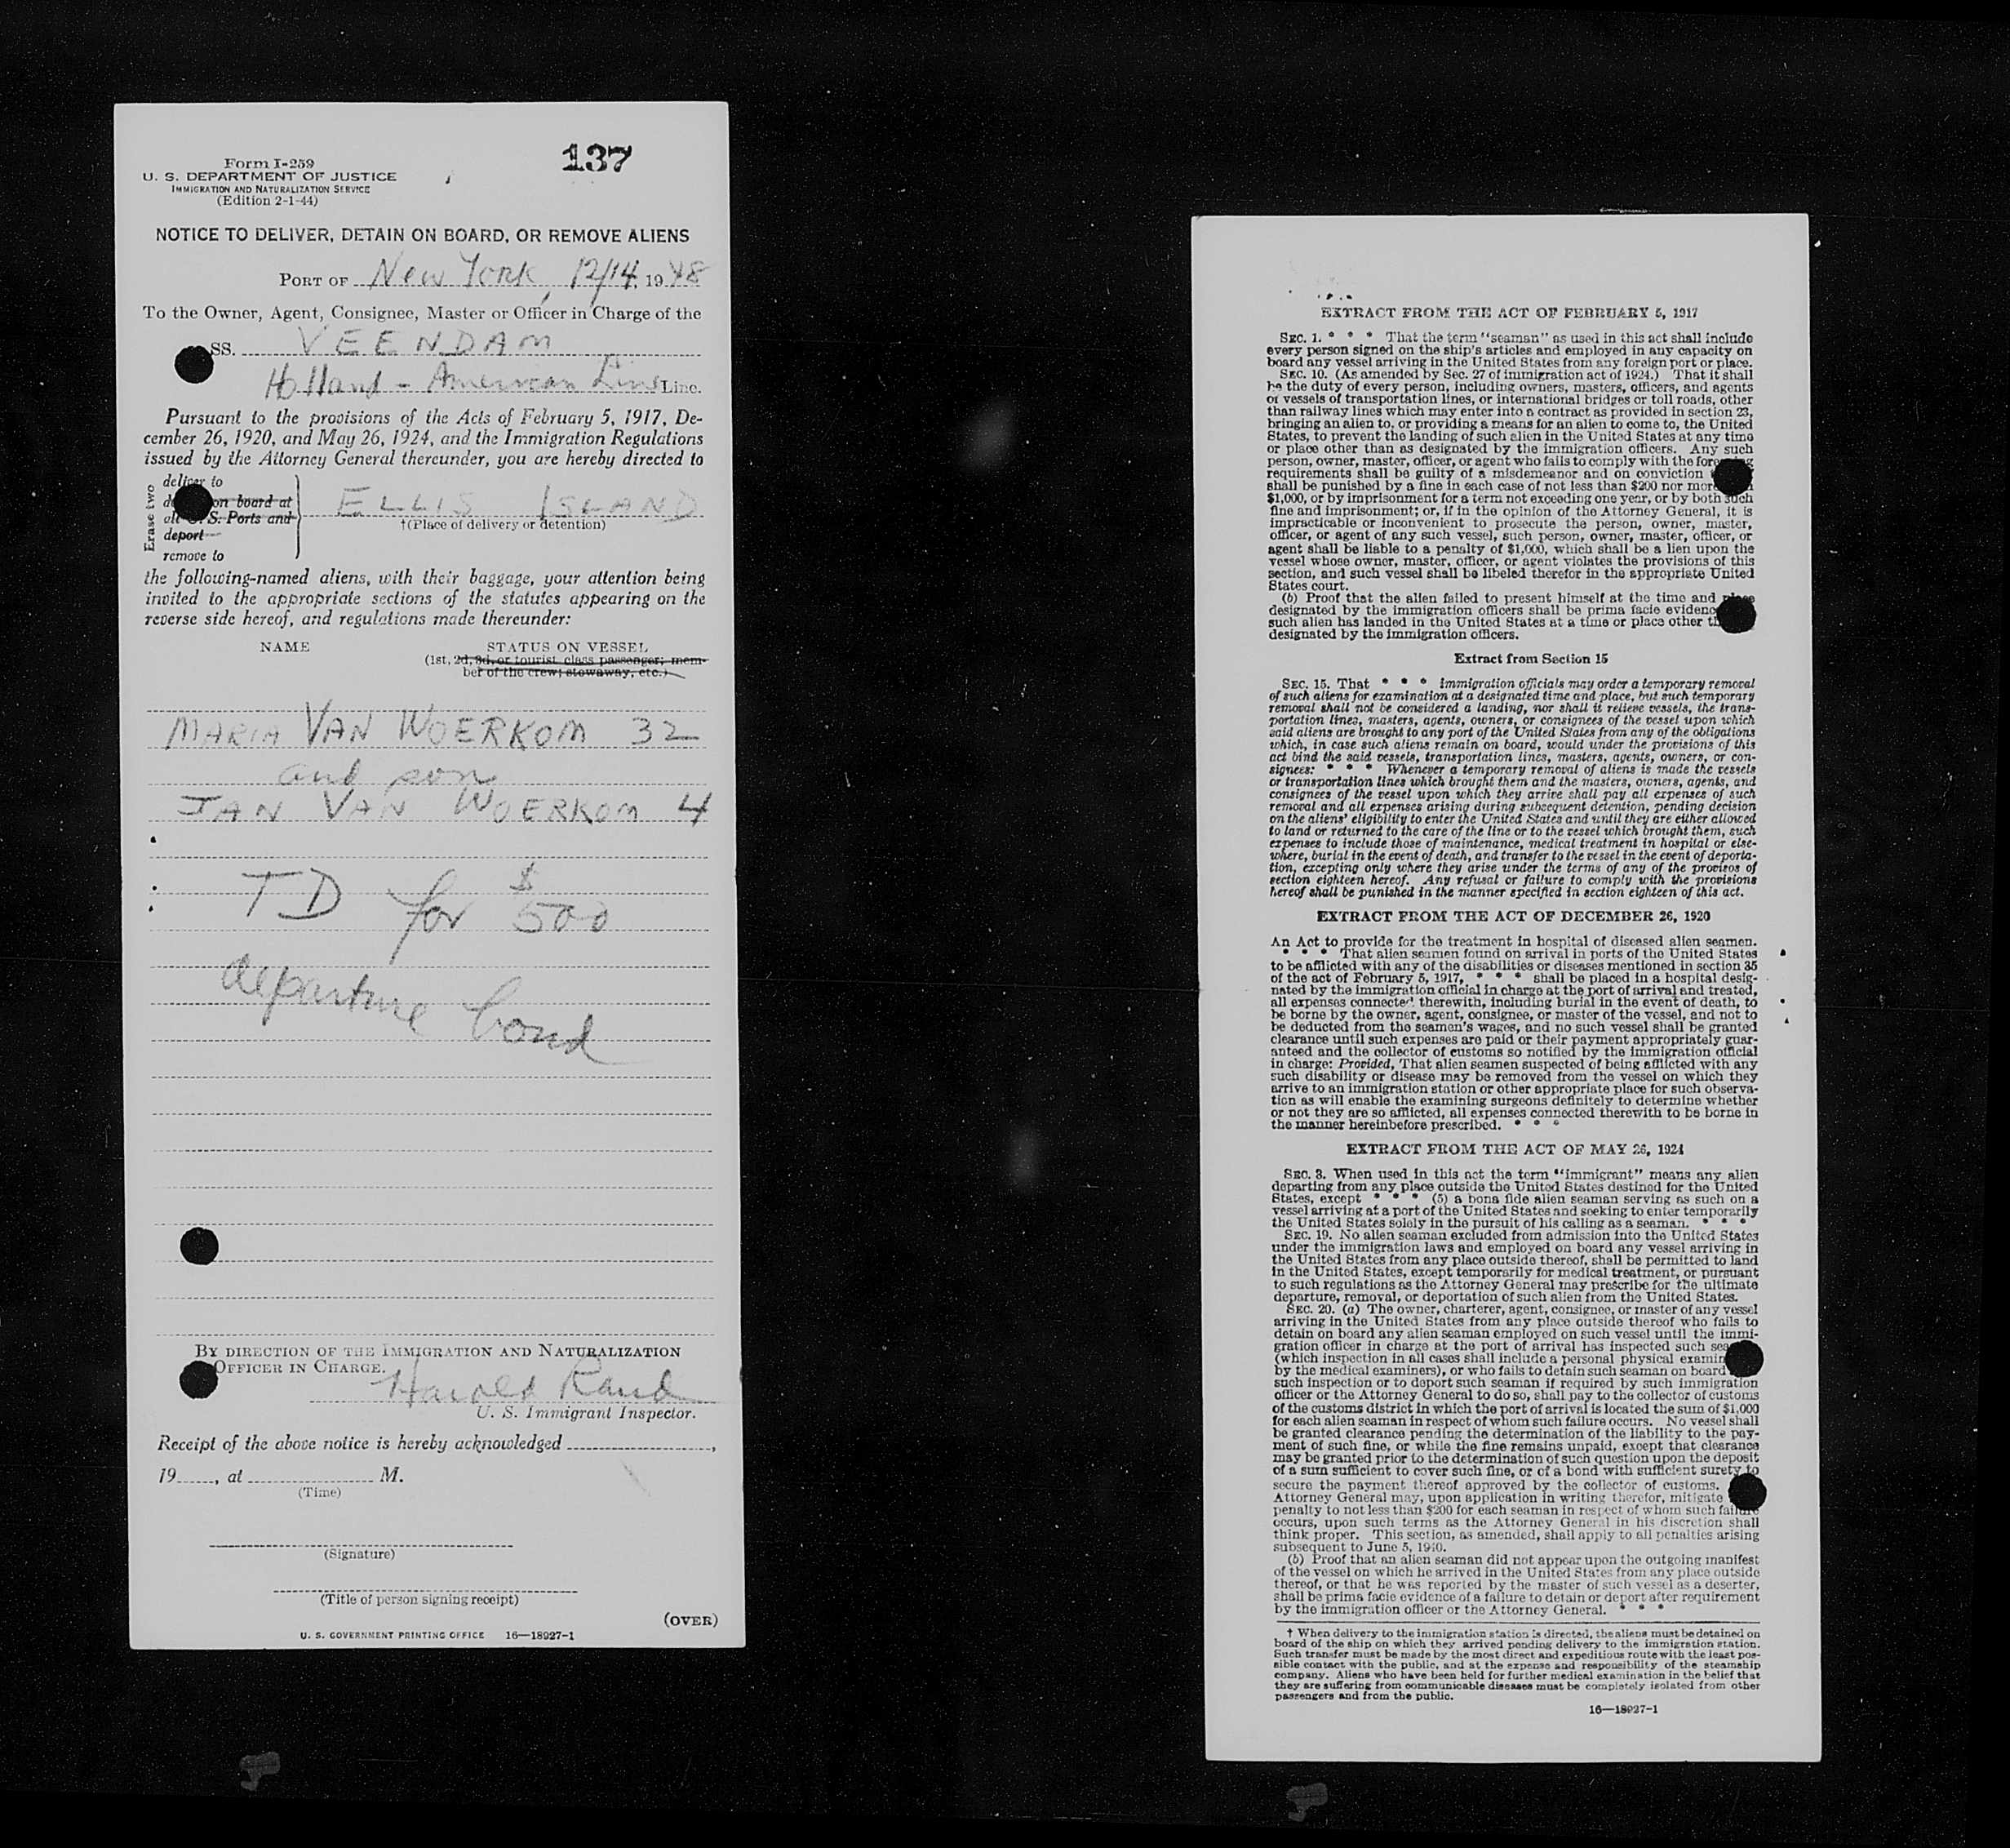 137
Form I-259
U. S. DEPARTMENT OF JUSTICE
IMMIGRATION AND NATURALIZATION SERVICE
(Edition 2-1-44)
NOTICE TO DELIVER, DETAIN ON BOARD, OR REMOVE ALIENS
PORT OF New York, 12/14, 1948
To the Owner, Agent, Consignee, Master or Officer in Charge of the
SS. VEENDAM
Holland - American Line Line.
Pursuant to the provisions of the Acts of February 5, 1917, De-
cember 26, 1920, and May 26, 1924, and the Immigration Regulations
issued by the Attorney General thereunder, you are hereby directed to
Erase two
deliver to
on board at
S. Ports and
deport
remove to
ELLIS ISLAND
†(Place of delivery or detention)
the following-named aliens, with their baggage, your attention being
invited to the appropriate sections of the statutes appearing on the
reverse side hereof, and regulations made thereunder:
NAME STATUS ON VESSEL
(1st, 2d, 3d, or tourist class passenger; mem-
ber of the crew; stowaway, etc.)
MARIA VAN WOERKOM 32
and son
JAN VAN WOERKOM 4
TD for $500
departure bond
BY DIRECTION OF THE IMMIGRATION AND NATURALIZATION
OFFICER IN CHARGE.
Harold Rand
U. S. Immigrant Inspector.
Receipt of the above notice is hereby acknowledged ,
19 , at M.
(Time)
(Signature)
(Title of person signing receipt)
(OVER)
U. S. GOVERNMENT PRINTING OFFICE 16—18927-1
EXTRACT FROM THE ACT OF FEBRUARY 5, 1917
SEC. 1. * * * That the term "seaman" as used in this act shall include
every person signed on the ship's articles and employed in any capacity on
board any vessel arriving in the United States from any foreign port or place.
SEC. 10. (As amended by Sec. 27 of immigration act of 1924.) That it shall
be the duty of every person, including owners, masters, officers, and agents
of vessels of transportation lines, or international bridges or toll roads, other
than railway lines which may enter into a contract as provided in section 23,
bringing an alien to, or providing a means for an alien to come to, the United
States, to prevent the landing of such alien in the United States at any time
or place other than as designated by the immigration officers. Any such
person, owner, master, officer, or agent who fails to comply with the foregoing
requirements shall be guilty of a misdemeanor and on conviction
shall be punished by a fine in each case of not less than $200 nor more
$1,000, or by imprisonment for a term not exceeding one year, or by both such
fine and imprisonment; or, if in the opinion of the Attorney General, it is
impracticable or inconvenient to prosecute the person, owner, master,
officer, or agent of any such vessel, such person, owner, master, officer, or
agent shall be liable to a penalty of $1,000, which shall be a lien upon the
vessel whose owner, master, officer, or agent violates the provisions of this
section, and such vessel shall be libeled therefor in the appropriate United
States court.
(b) Proof that the alien failed to present himself at the time and place
designated by the immigration officers shall be prima facie evidence
such alien has landed in the United States at a time or place other
designated by the immigration officers.
Extract from Section 15
SEC. 15. That * * * immigration officials may order a temporary removal
of such aliens for examination at a designated time and place, but such temporary
removal shall not be considered a landing, nor shall it relieve vessels, the trans-
portation lines, masters, agents, owners, or consignees of the vessel upon which
said aliens are brought to any port of the United States from any of the obligations
which, in case such aliens remain on board, would under the provisions of this
act bind the said vessels, transportation lines, masters, agents, owners, or con-
signees: * * * Whenever a temporary removal of aliens is made the vessels
or transportation lines which brought them and the masters, owners, agents, and
consignees of the vessel upon which they arrive shall pay all expenses of such
removal and all expenses arising during subsequent detention, pending decision
on the aliens' eligibility to enter the United States and until they are either allowed
to land or returned to the care of the line or to the vessel which brought them, such
expenses to include those of maintenance, medical treatment in hospital or else-
where, burial in the event of death, and transfer to the vessel in the event of deporta-
tion, excepting only where they arise under the terms of any of the provisos of
section eighteen hereof. Any refusal or failure to comply with the provisions
hereof shall be punished in the manner specified in section eighteen of this act.
EXTRACT FROM THE ACT OF DECEMBER 26, 1920
An Act to provide for the treatment in hospital of diseased alien seamen.
* * * That alien seamen found on arrival in ports of the United States
to be afflicted with any of the disabilities or diseases mentioned in section 35
of the act of February 5, 1917, * * * shall be placed in a hospital desig-
nated by the immigration official in charge at the port of arrival and treated,
all expenses connected therewith, including burial in the event of death, to
be borne by the owner, agent, consignee, or master of the vessel, and not to
be deducted from the seamen's wages, and no such vessel shall be granted
clearance until such expenses are paid or their payment appropriately guar-
anteed and the collector of customs so notified by the immigration official
in charge: Provided, That alien seamen suspected of being afflicted with any
such disability or disease may be removed from the vessel on which they
arrive to an immigration station or other appropriate place for such observa-
tion as will enable the examining surgeons definitely to determine whether
or not they are so afflicted, all expenses connected therewith to be borne in
the manner hereinbefore prescribed. * * *
EXTRACT FROM THE ACT OF MAY 26, 1924
SEC. 3. When used in this act the term "immigrant" means any alien
departing from any place outside the United States destined for the United
States, except * * * (5) a bona fide alien seaman serving as such on a
vessel arriving at a port of the United States and seeking to enter temporarily
the United States solely in the pursuit of his calling as a seaman. * * *
SEC. 19. No alien seaman excluded from admission into the United States
under the immigration laws and employed on board any vessel arriving in
the United States from any place outside thereof, shall be permitted to land
in the United States, except temporarily for medical treatment, or pursuant
to such regulations as the Attorney General may prescribe for the ultimate
departure, removal, or deportation of such alien from the United States.
SEC. 20. (a) The owner, charterer, agent, consignee, or master of any vessel
arriving in the United States from any place outside thereof who fails to
detain on board any alien seaman employed on such vessel until the immi-
gration officer in charge at the port of arrival has inspected such
(which inspection in all cases shall include a personal physical
by the medical examiners), or who fails to detain such seaman on board
such inspection or to deport such seaman if required by such immigration
officer or the Attorney General to do so, shall pay to the collector of customs
of the customs district in which the port of arrival is located the sum of $1,000
for each alien seaman in respect of whom such failure occurs. No vessel shall
be granted clearance pending the determination of the liability to the pay-
ment of such fine, or while the fine remains unpaid, except that clearance
may be granted prior to the determination of such question upon the deposit
of a sum sufficient to cover such fine, or of a bond with sufficient surety to
secure the payment thereof approved by the collector of customs.
Attorney General may, upon application in writing therefor, mitigate
penalty to not less than $200 for each seaman in respect of whom such failure
occurs, upon such terms as the Attorney General in his discretion shall
think proper. This section, as amended, shall apply to all penalties arising
subsequent to June 5, 1940.
(b) Proof that an alien seaman did not appear upon the outgoing manifest
of the vessel on which he arrived in the United States from any place outside
thereof, or that he was reported by the master of such vessel as a deserter,
shall be prima facie evidence of a failure to detain or deport after requirement
by the immigration officer or the Attorney General. * * *
† When delivery to the immigration station is directed, the aliens must be detained on
board of the ship on which they arrived pending delivery to the immigration station.
Such transfer must be made by the most direct and expeditious route with the least pos-
sible contact with the public, and at the expense and responsibility of the steamship
company. Aliens who have been held for further medical examination in the belief that
they are suffering from communicable diseases must be completely isolated from other
passengers and from the public.
16—18927-1